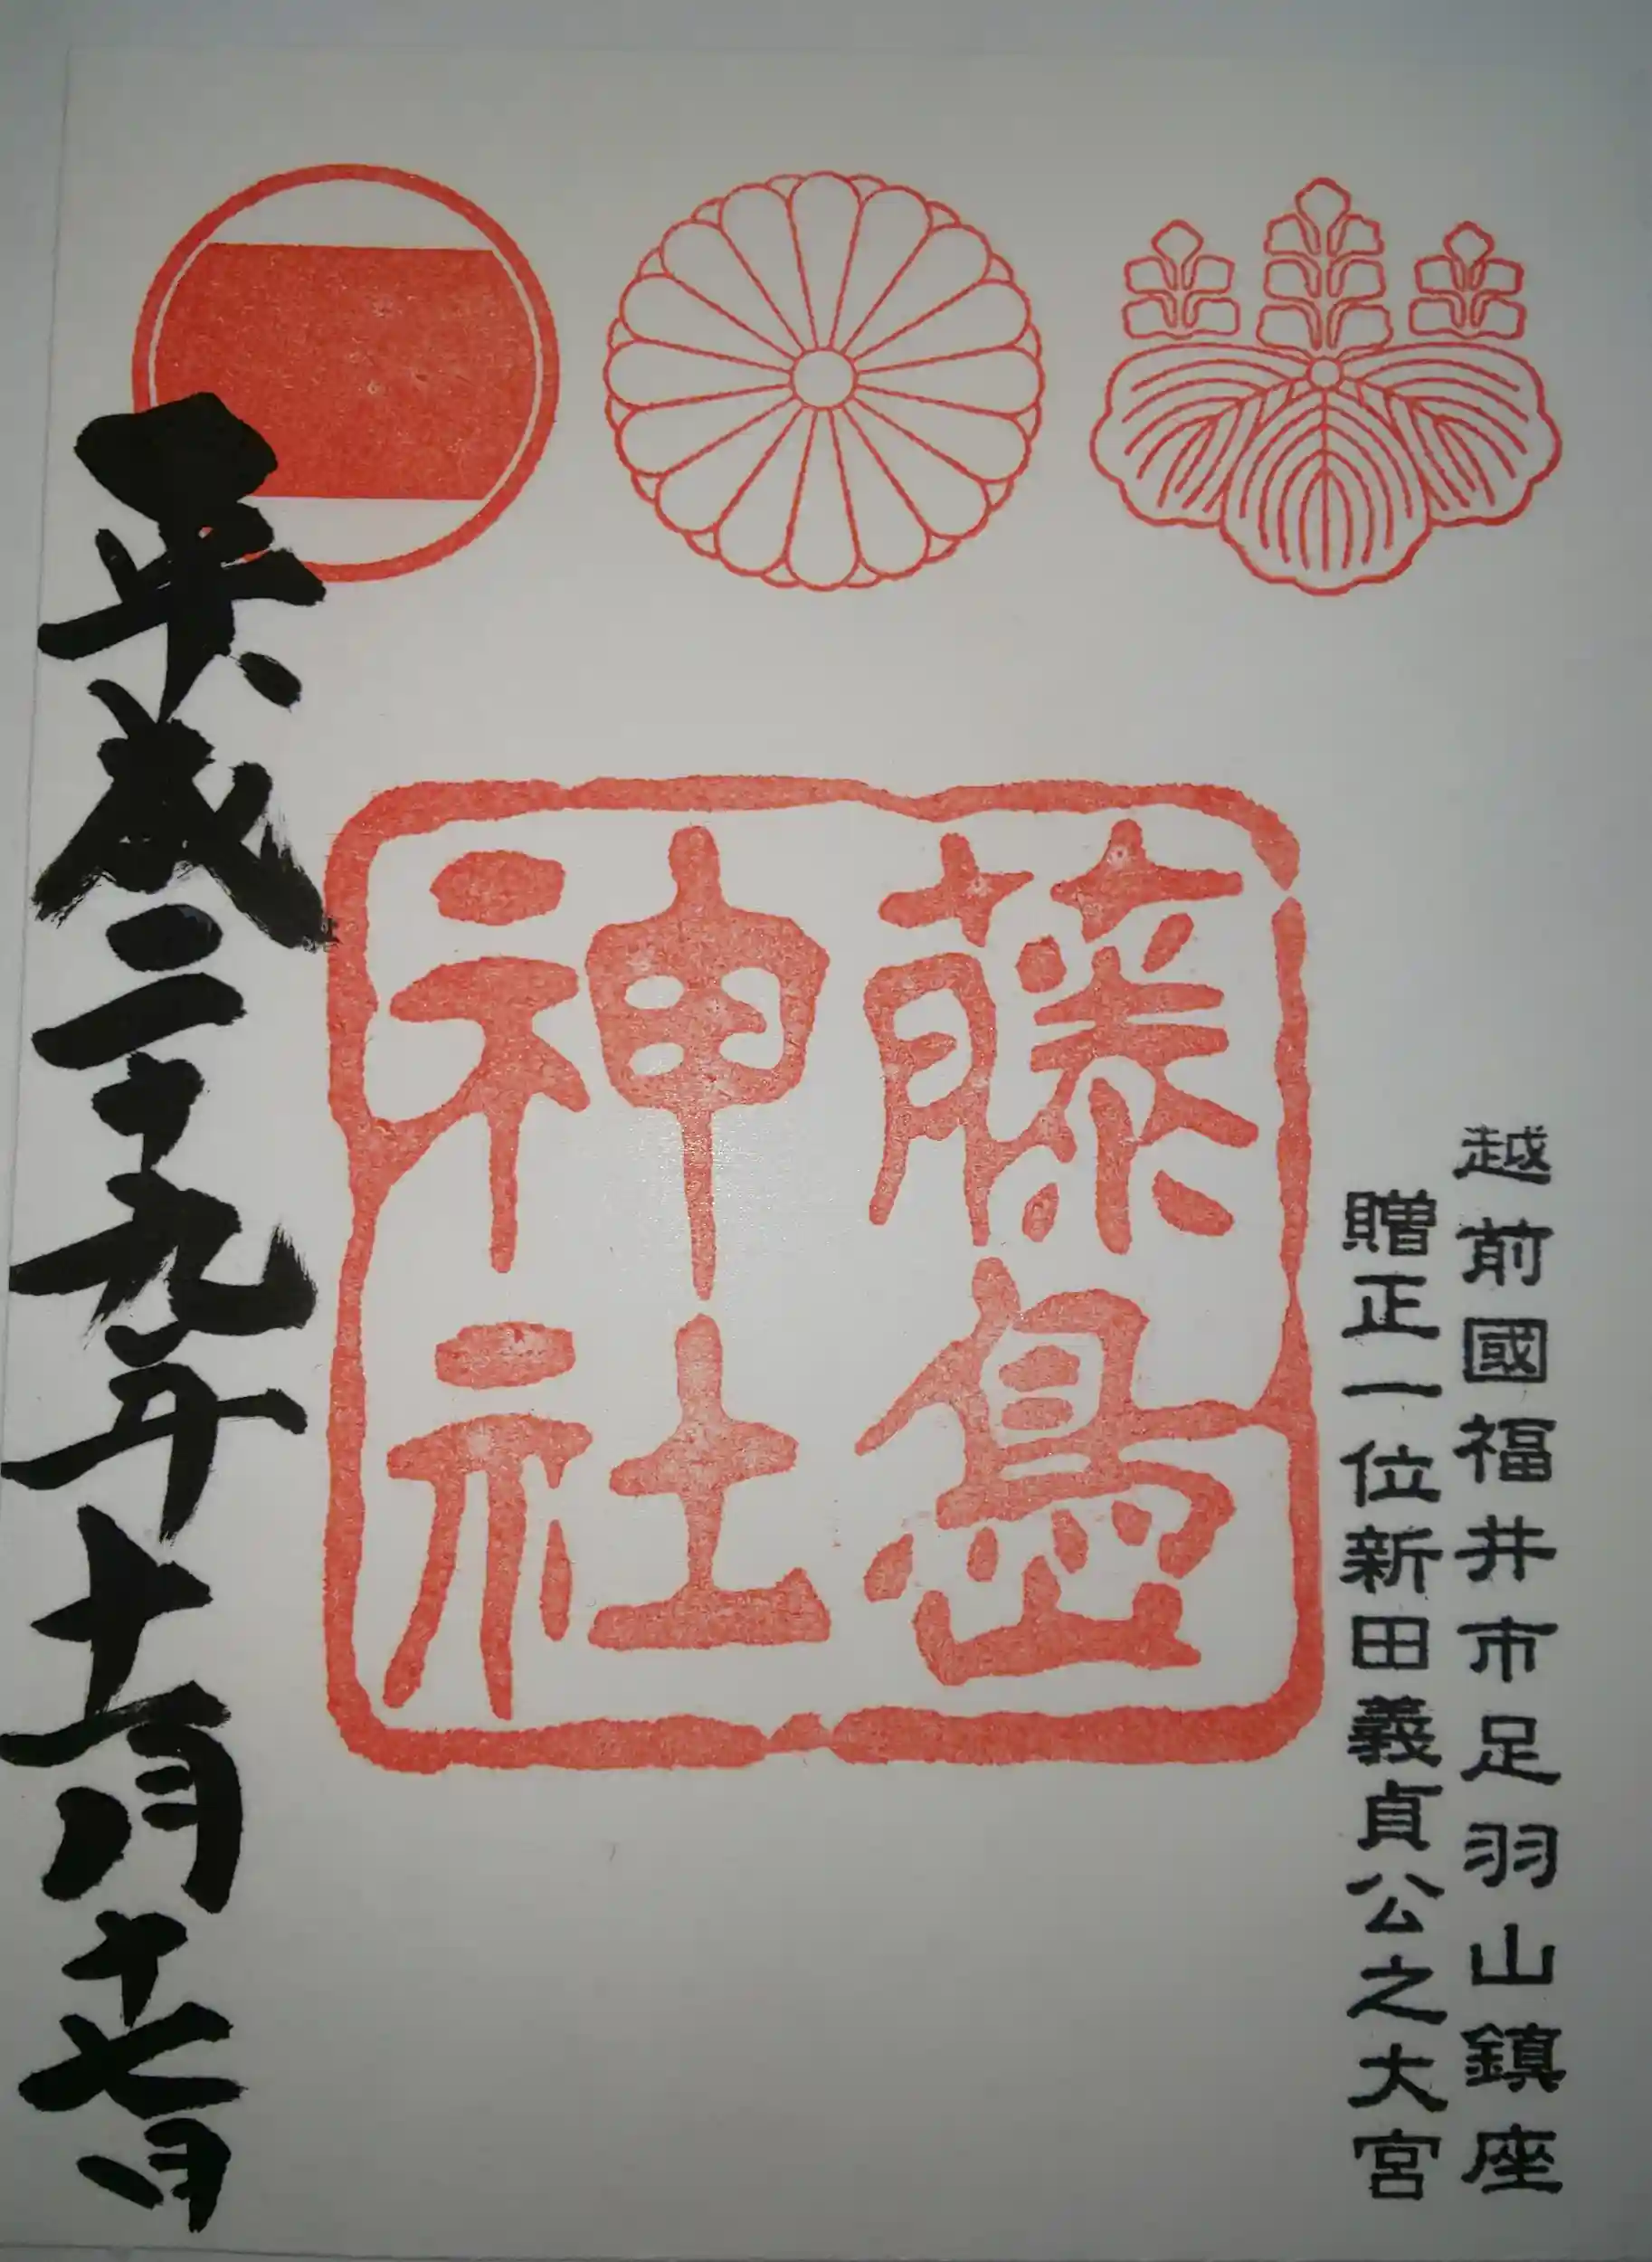 越前國福井市足羽山鎮座
贈正一位新田義貞公之大宮
藤島
神社
平成二十九年十一月十七日